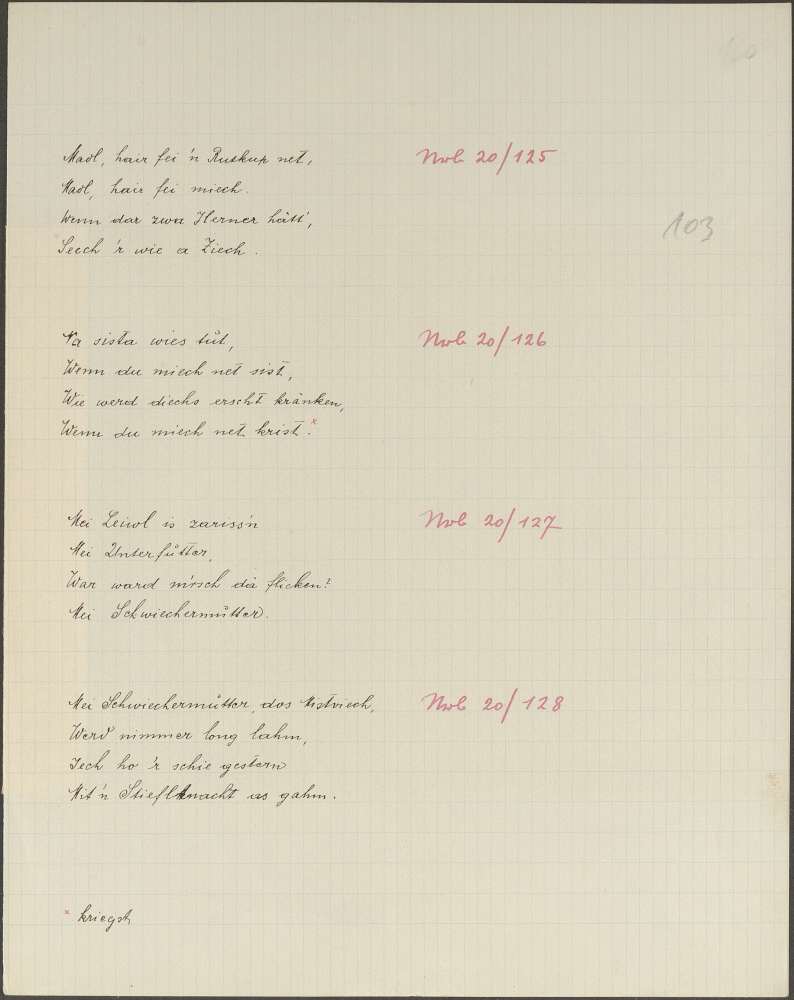 Madl, hair fei 'n Ruskup net, Nvb 20/125
Madl, hair fei miech.
Wenn dar zwa Herner hätt',
103
Seech 'r wie a Ziech.
Na sista wies tůt, Nvb 20/126
Wenn du miech net sist,
Wie werd diechs erscht kränken,
Wenn du miech net krist.ˣ
Mei Leiwl is zariss'n Nvb 20/127
Mei Unterfůtter,
War ward mirsch dä flicken?
Mei Schwiechermůtter.
Mei Schwiechermůtter, dos Mistviech, Nvb 20/128
Werd nimmer long lahm,
Iech ho 'r schie gestern
Mit'n Stieflknacht as gahm.
ˣ kriegst